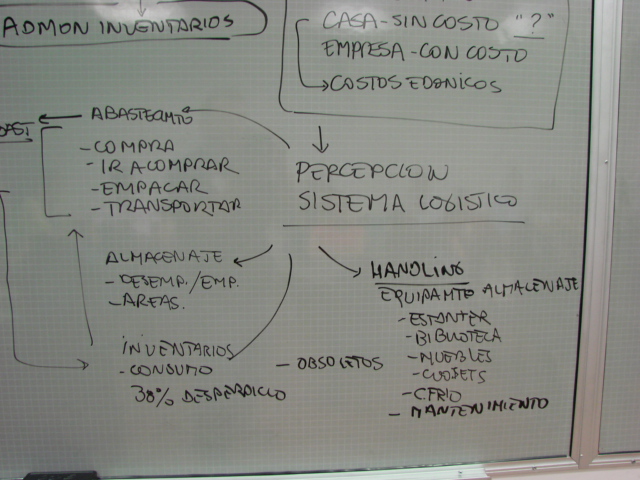 ADMON INVENTARIOS
CASA-SIN COSTO "?"
EMPRESA-CON COSTO
COSTOS EDONICOS
ABASTECMTO
- COMPRA
- IR A COMPRAR
- EMPACAR
- TRANSPORTAR
PERCEPCION
SISTEMA LOGISTICO
ALMACENAJE
- DESEMP./EMP.
- AREAS.
HANDLING
EQUIPAMTO ALMACENAJE
- ESTANTER
- BIBLIOTECA
- MUEBLES
- CLOSETS
- C.FRIO
- MANTENIMIENTO
INVENTARIOS
- CONSUMO
30% DESPERDICIO
- OBSOLETOS